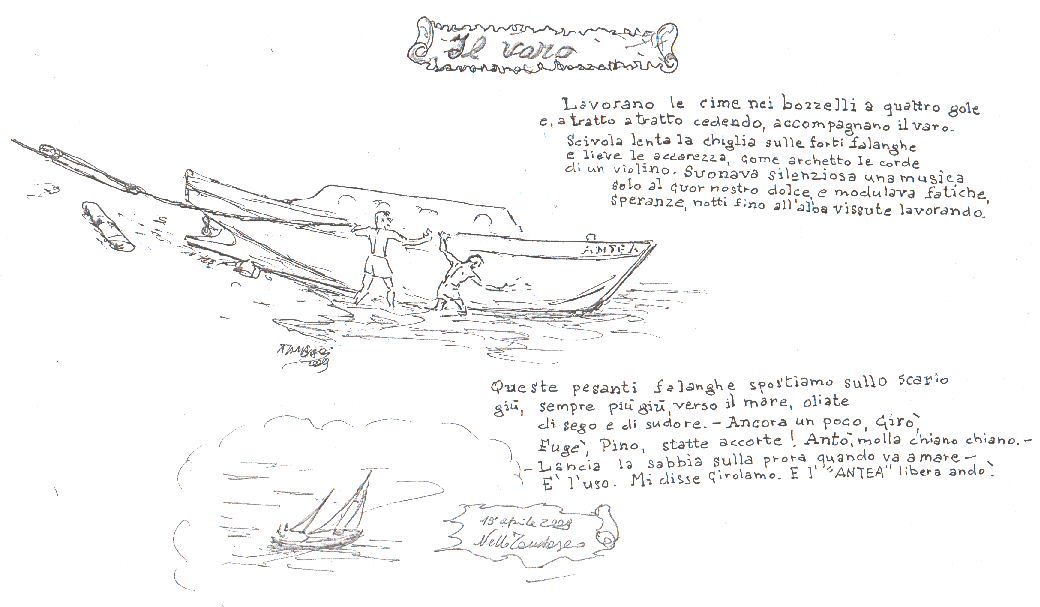 Il varo
Lavorano le cime nei bozzelli a quattro gole
e, a tratto a tratto cedendo, accompagnano il varo.
Scivola lenta la chiglia sulle forti falanghe
e lieve le accarezza, come archetto le corde
di un violino. Suonava silenziosa una musica
solo al cuor nostro dolce, e modulava fatiche,
speranze, notti fino all'alba vissute lavorando.
ANTEA
Queste pesanti falanghe spostiamo sullo scario
giù, sempre più giù, verso il mare, oliate
di sego e di sudore. - Ancora un poco, Girò,
Eugè, Pino, statte accorte! Antò, molla chiano chiano. -
- Lancia la sabbia sulla prora quando va a mare -
E' l'uso. Mi disse Girolamo. E l' "ANTEA" libera andò.
aprile
Nello